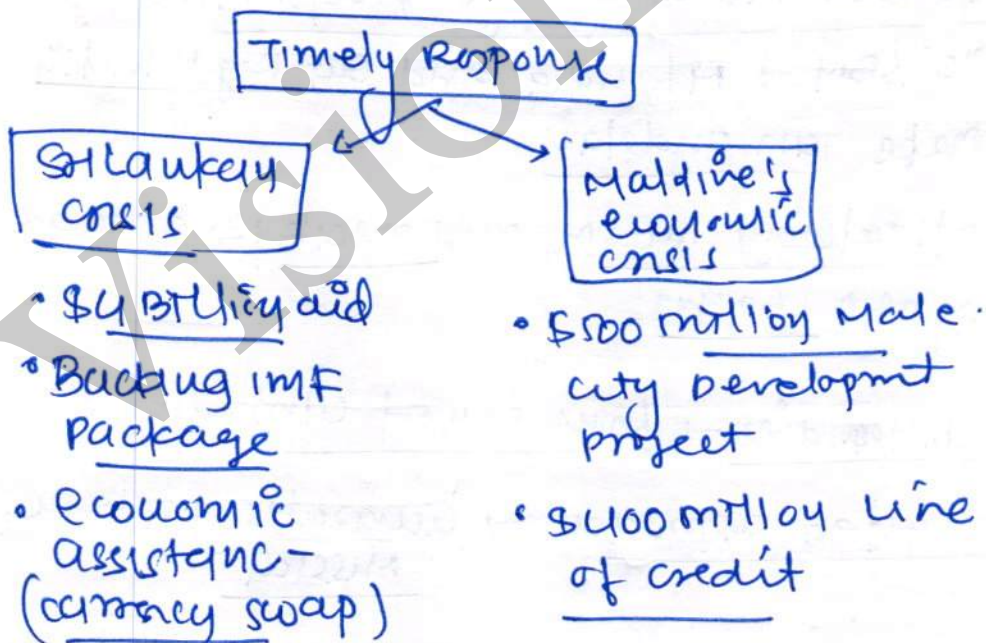 Timely Response
Sri Lankan
crisis
• $4 Billion aid
• Backing IMF
package
• economic
assistanc-
(currency swap)
Maldive's
economic
crisis
• $500 million Male
city Developmt
project
• $400 million line
of credit
Vision